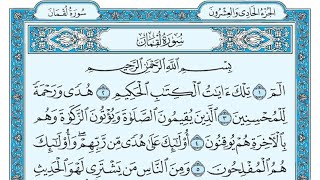 سُورَةُ لُقْمَانَ
الجُزْءُ الحَادِى وَالعِشْرُونَ
سُورَةُ لُقْمَانَ
بِسْمِ ٱللَّهِ ٱلرَّحْمَٰنِ ٱلرَّحِيمِ
الٓمٓ ١ تِلْكَ ءَايَٰتُ ٱلْكِتَٰبِ ٱلْحَكِيمِ ٢ هُدًى وَرَحْمَةً
لِّلْمُحْسِنِينَ ٣ ٱلَّذِينَ يُقِيمُونَ ٱلصَّلَوٰةَ وَيُؤْتُونَ ٱلزَّكَوٰةَ وَهُم
بِٱلْءَاخِرَةِ هُمْ يُوقِنُونَ ٤ أُو۟لَٰٓئِكَ عَلَىٰ هُدًى مِّن رَّبِّهِمْ ۖ وَأُو۟لَٰٓئِكَ
هُمُ ٱلْمُفْلِحُونَ ٥ وَمِنَ ٱلنَّاسِ مَن يَشْتَرِى لَهْوَ ٱلْحَدِيثِ